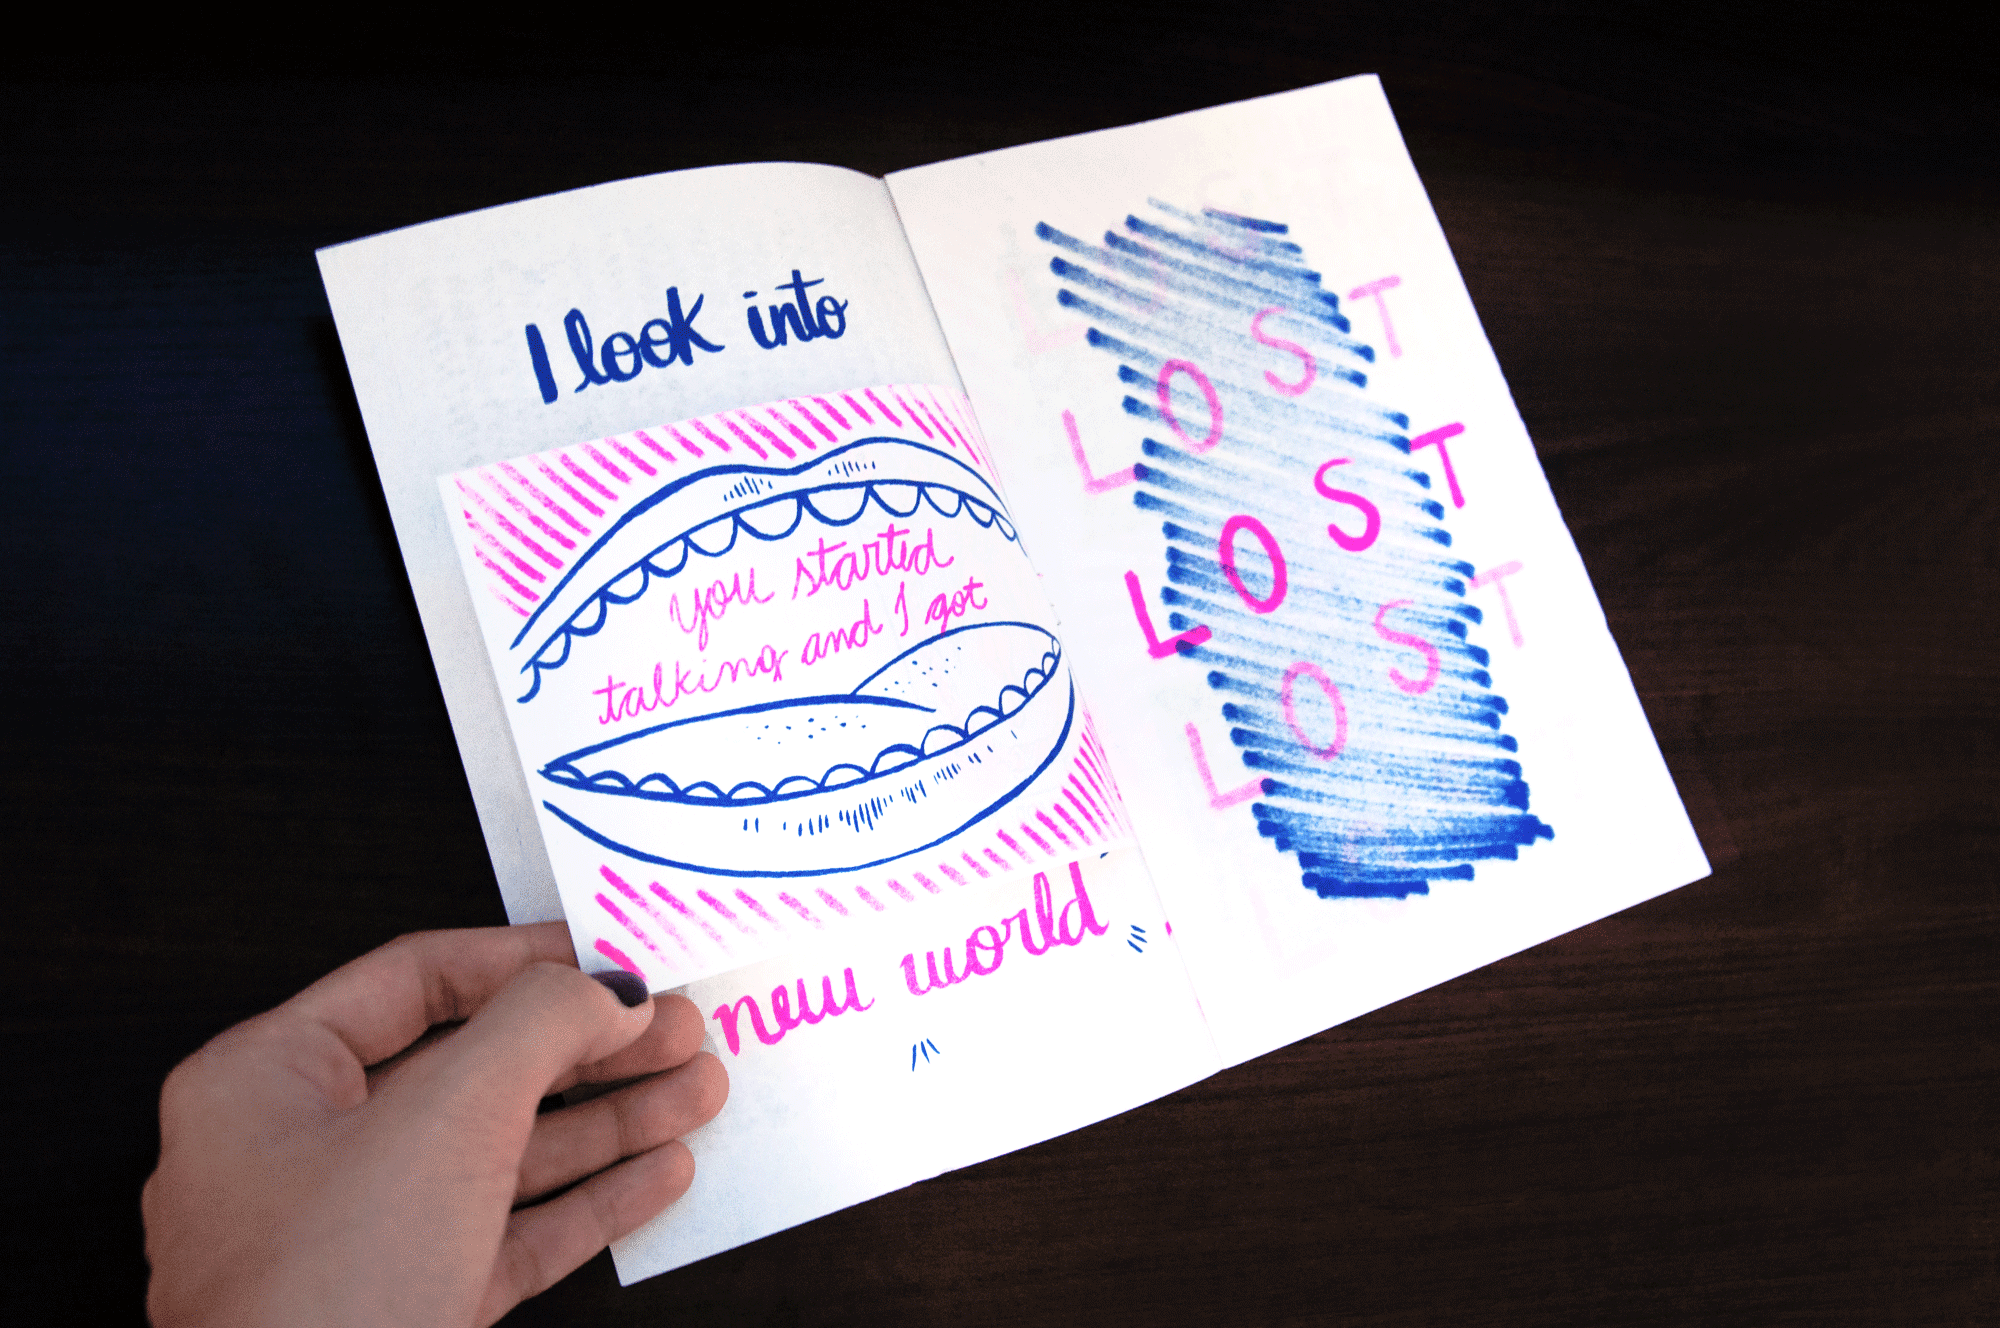 I look into
you started
talking and I got
new world
LOST
LOST
LOST